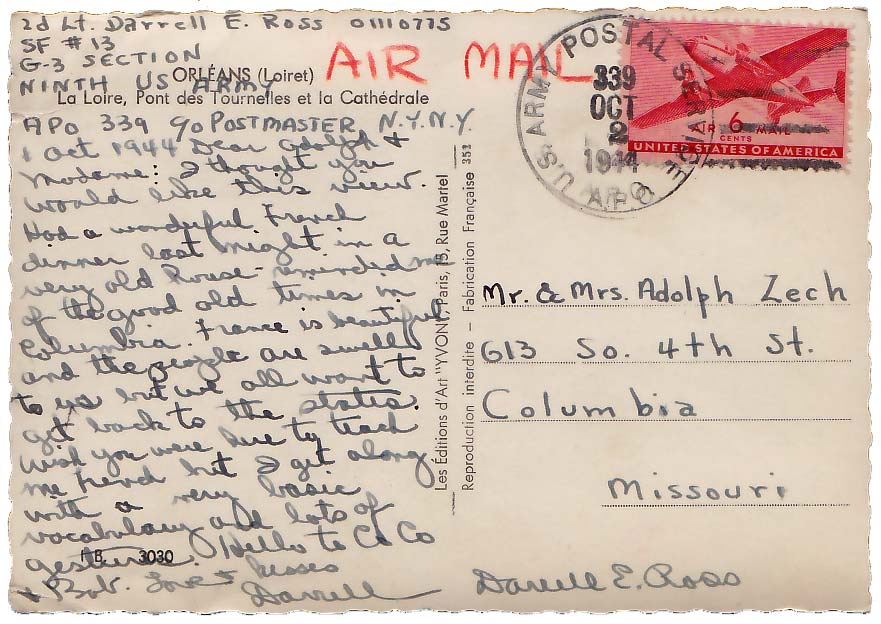 2d Lt. Darrell E. Ross 01110775
SF # 13
G-3 SECTION
NINTH US ARMY
APO 339 c/o POSTMASTER N.Y.N.Y.
ORLÉANS (Loiret)
La Loire, Pont des Tournelles et la Cathédrale
AIR MAIL
1 Oct 1944 Dear Adolph &
Madame: I thought you
would like this view.
Had a wonderful French
dinner last night in a
very old house - reminded me
of the good old times in
Columbia. France is beautiful
and the people are swell
to us but we all want to
get back to the states.
Wish you were here to teach
me french but I get along
with a very basic
vocabulary and lots of
gestures. Hello to Co Co
& Bob. Love & kisses
Darrell
I. B. 3030
Les Éditions d'Art "YVON", Paris, 15, Rue Martel
Reproduction interdite – Fabrication Française 352
U.S. ARMY POSTAL SERVICE
339
OCT
2
1944
A.P.O.
AIR 6 MAIL
CENTS
UNITED STATES OF AMERICA
Mr. & Mrs. Adolph Zech
613 So. 4th St.
Columbia
Missouri
Darrell E. Ross